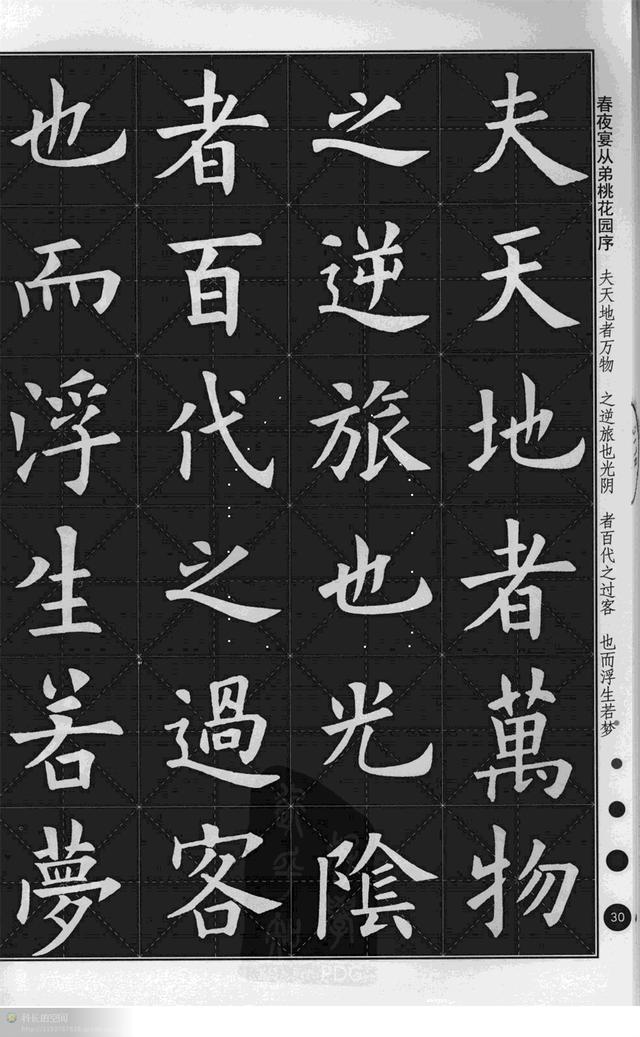 夫天地者萬物
之逆旅也光陰
者百代之過客
也而浮生若夢
春夜宴从弟桃花园序 夫天地者万物 之逆旅也光阴 者百代之过客 也而浮生若梦
30
PDG
科长的空间